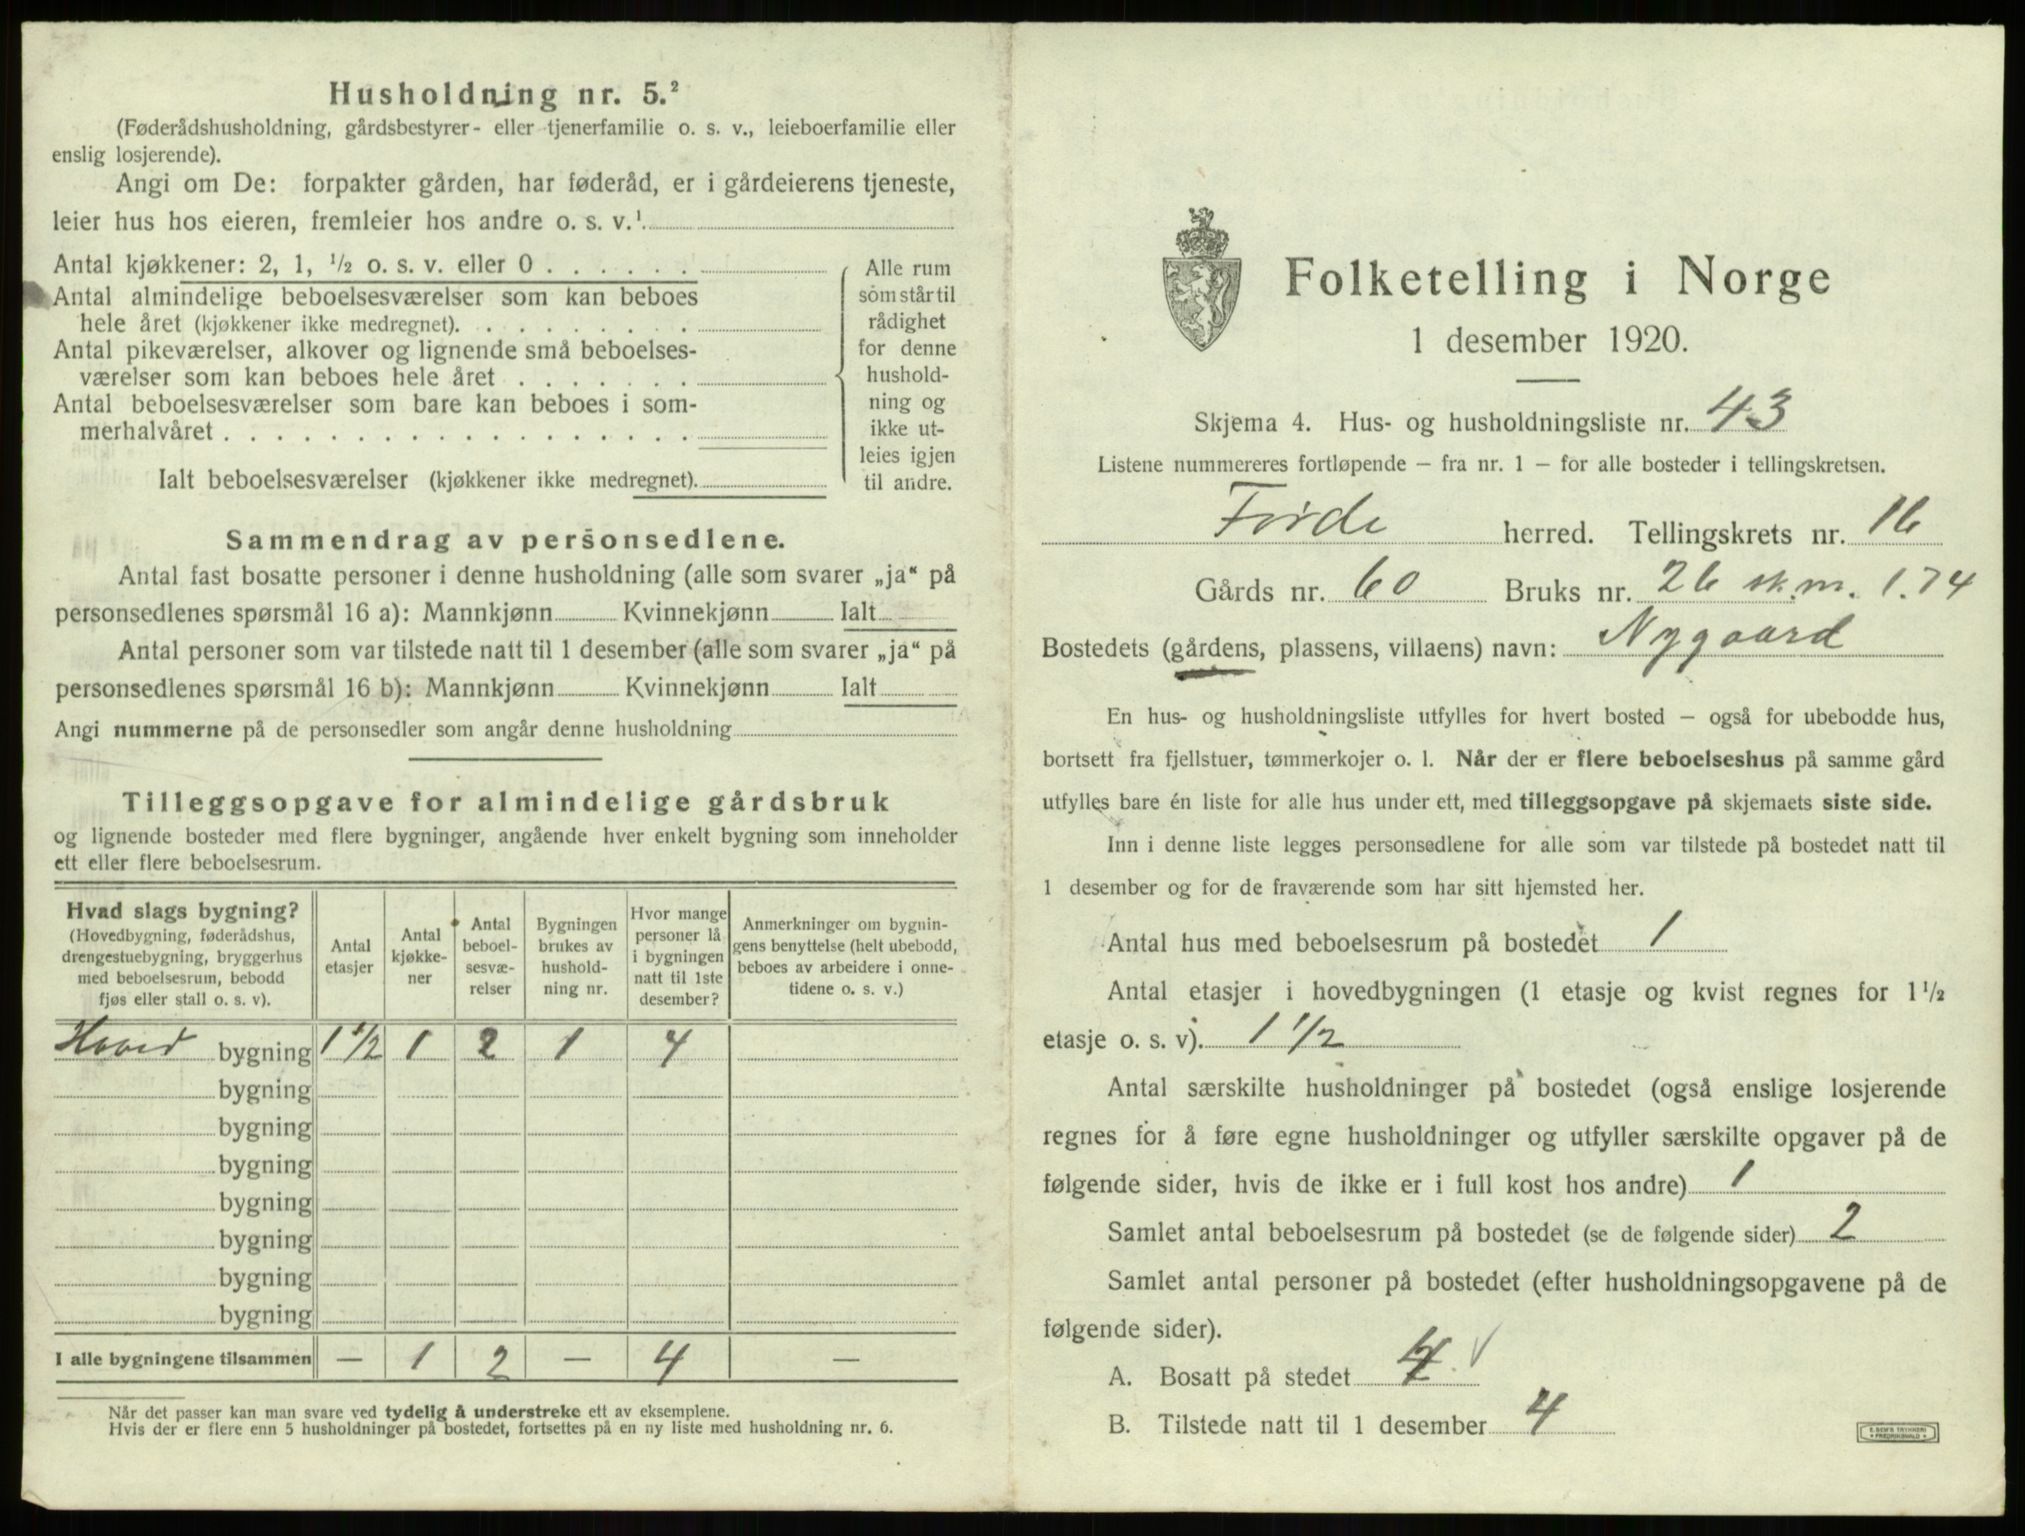 Husholdning nr. 5.²
(Føderådshusholdning, gårdsbestyrer- eller tjenerfamilie o. s. v., leieboerfamilie eller
enslig losjerende).
Angi om De: forpakter gården, har føderåd, er i gårdeierens tjeneste,
leier hus hos eieren, fremleier hos andre o. s. v.¹
Antal kjøkkener: 2, 1, ½ o. s. v. eller 0 . . . . . .
Antal almindelige beboelsesværelser som kan beboes
hele året (kjøkkener ikke medregnet). . . . . . . . .
Antal pikeværelser, alkover og lignende små beboelses-
værelser som kan beboes hele året . . . . . . .
Antal beboelsesværelser som bare kan beboes i som-
merhalvåret . . . . . . . . . . . . . . . . . .
Ialt beboelsesværelser (kjøkkener ikke medregnet).
Alle rum
som står til
rådighet
for denne
hushold-
ning og
ikke ut-
leies igjen
til andre.
Sammendrag av personsedlene.
Antal fast bosatte personer i denne husholdning (alle som svarer „ja“ på
personsedlenes spørsmål 16 a): Mannkjønn Kvinnekjønn Ialt
Antal personer som var tilstede natt til 1 desember (alle som svarer „ja“ på
personsedlenes spørsmål 16 b): Mannkjønn Kvinnekjønn Ialt
Angi nummerne på de personsedler som angår denne husholdning
Tilleggsopgave for almindelige gårdsbruk
og lignende bosteder med flere bygninger, angående hver enkelt bygning som inneholder
ett eller flere beboelsesrum.
Hvad slags bygning?
(Hovedbygning, føderådshus,
drengestuebygning, bryggerhus
med beboelsesrum, bebodd
fjøs eller stall o. s. v).
Antal
etasjer
Antal
kjøkke-
ner
Antal
beboel-
sesvæ-
relser
Bygningen
brukes av
hushold-
ning nr.
Hvor mange
personer lå
i bygningen
natt til 1ste
desember?
Anmerkninger om bygnin-
gens benyttelse (helt ubebodd,
beboes av arbeidere i onne-
tidene o. s. v.)
Hoved bygning 1 1/2 1 2 1 4
bygning
bygning
bygning
bygning
bygning
bygning
bygning
I alle bygningene tilsammen — 1 2 — 4 —
Når det passer kan man svare ved tydelig å understreke ett av eksemplene.
Hvis der er flere enn 5 husholdninger på bostedet, fortsettes på en ny liste med husholdning nr. 6.
Folketelling i Norge
1 desember 1920.
Skjema 4. Hus- og husholdningsliste nr. 43
Listene nummereres fortløpende – fra nr. 1 – for alle bosteder i tellingskretsen.
Førde herred. Tellingskrets nr. 16
Gårds nr. 60 Bruks nr. 26 sk.m. 1.74
Bostedets (gårdens, plassens, villaens) navn: Nygaard
En hus- og husholdningsliste utfylles for hvert bosted – også for ubebodde hus,
bortsett fra fjellstuer, tømmerkojer o. l. Når der er flere beboelseshus på samme gård
utfylles bare én liste for alle hus under ett, med tilleggsopgave på skjemaets siste side.
Inn i denne liste legges personsedlene for alle som var tilstede på bostedet natt til
1 desember og for de fraværende som har sitt hjemsted her.
Antal hus med beboelsesrum på bostedet 1
Antal etasjer i hovedbygningen (1 etasje og kvist regnes for 1½
etasje o. s. v). 1 1/2
Antal særskilte husholdninger på bostedet (også enslige losjerende
regnes for å føre egne husholdninger og utfyller særskilte opgaver på de
følgende sider, hvis de ikke er i full kost hos andre) 1
Samlet antal beboelsesrum på bostedet (se de følgende sider) 2
Samlet antal personer på bostedet (efter husholdningsopgavene på de
følgende sider).
A. Bosatt på stedet 4. √
B. Tilstede natt til 1 desember 4
E. SEM'S TRYKKERI
FREDRIKSHALD